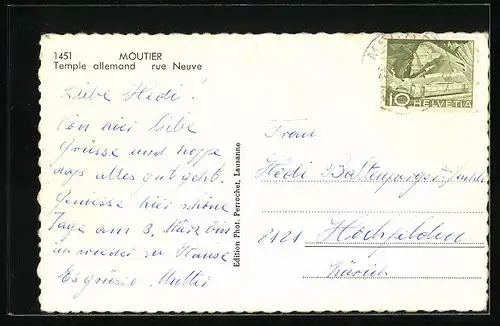 1451 MOUTIER
Temple allemand rue Neuve
Liebe Hedi!
Von hier liebe
Grüsse und hoffe
dass alles gut geht.
Geniesse hier schöne
Tage am 3. März bin
ich wieder zu Hause
Es grüsst Mutti
Edition Phot. Perrochet, Lausanne
10 HELVETIA
Frau
Hedi
8181 Hochfelden
Zürich